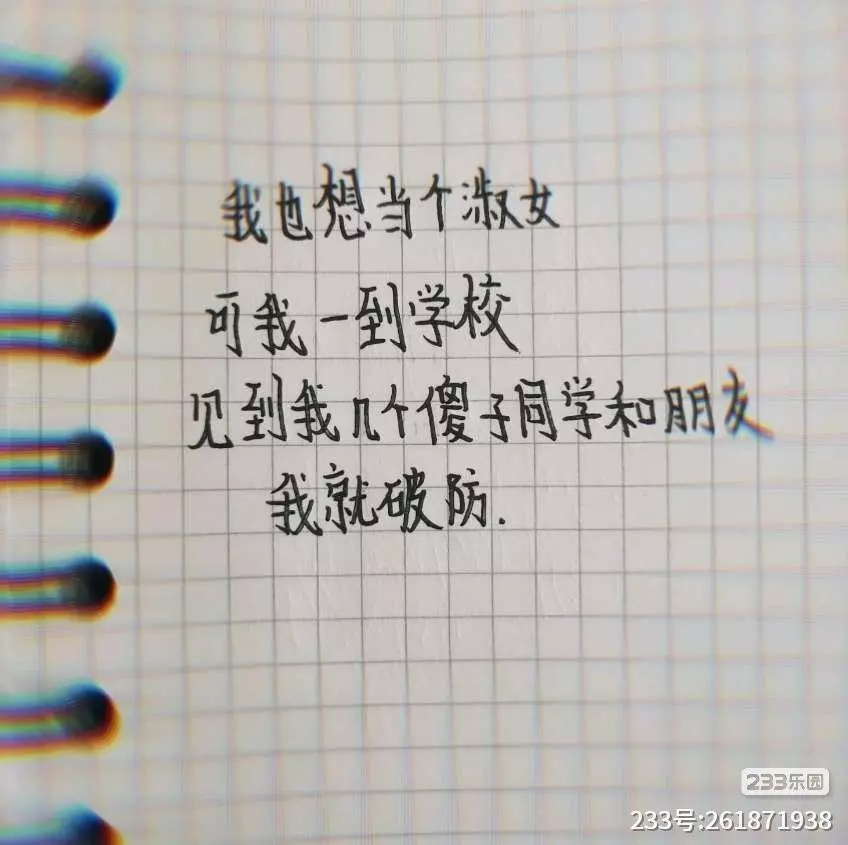 我也想当个淑女
可我一到学校
见到我几个傻子同学和朋友
我就破防.
233乐园
233号:261871938